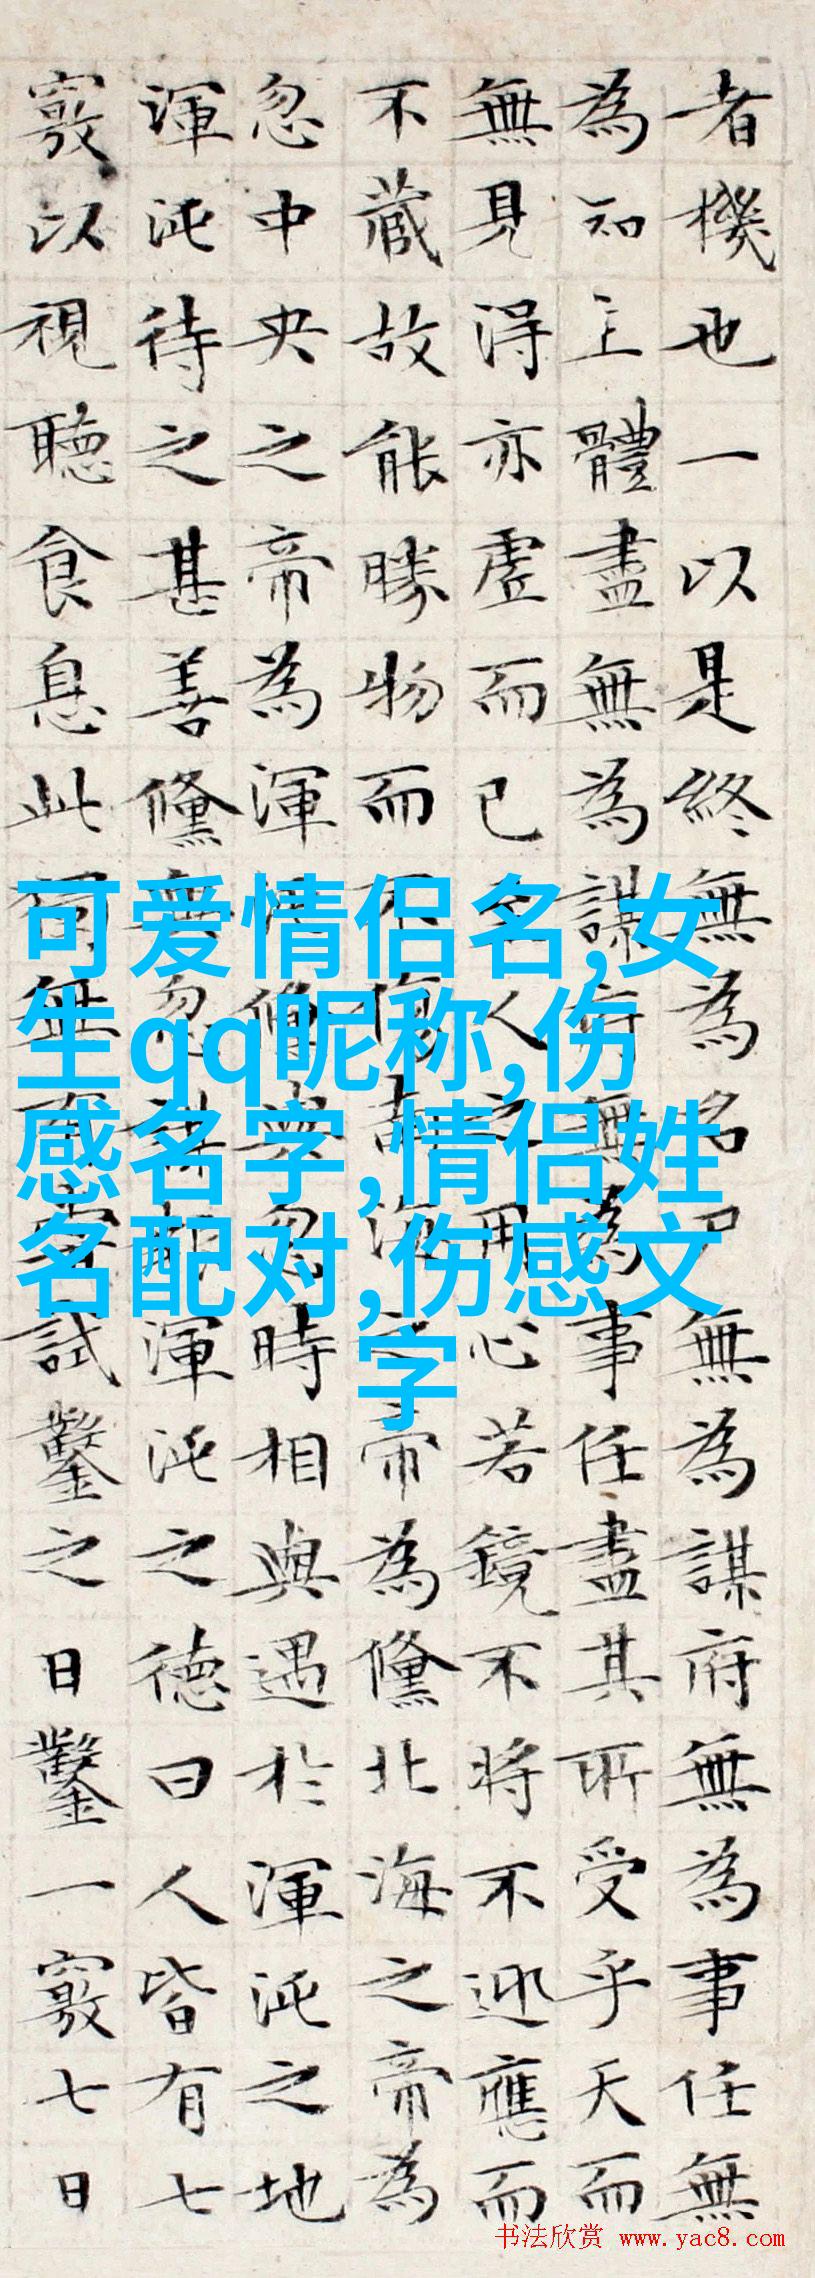 者機也一以是終無為名尸無為謀府無為事任無
為知主體盡無為謀府無為事任盡其所受乎天而
無見得亦虛而已至人之用心若鏡不將不迎應而
不藏故能勝物而不傷南海之帝為儵北海之帝為
忽中央之帝為渾沌儵與忽時相與遇於渾沌之地
渾沌待之甚善儵與忽謀報渾沌之德曰人皆有七
竅以視聽食息此獨無有嘗試鑿之日鑿一竅七日
可爱情侣名,女
生qq昵称,伤
感名字,情侣姓
名配对,伤感文
字
书法欣赏 www.yac8.com